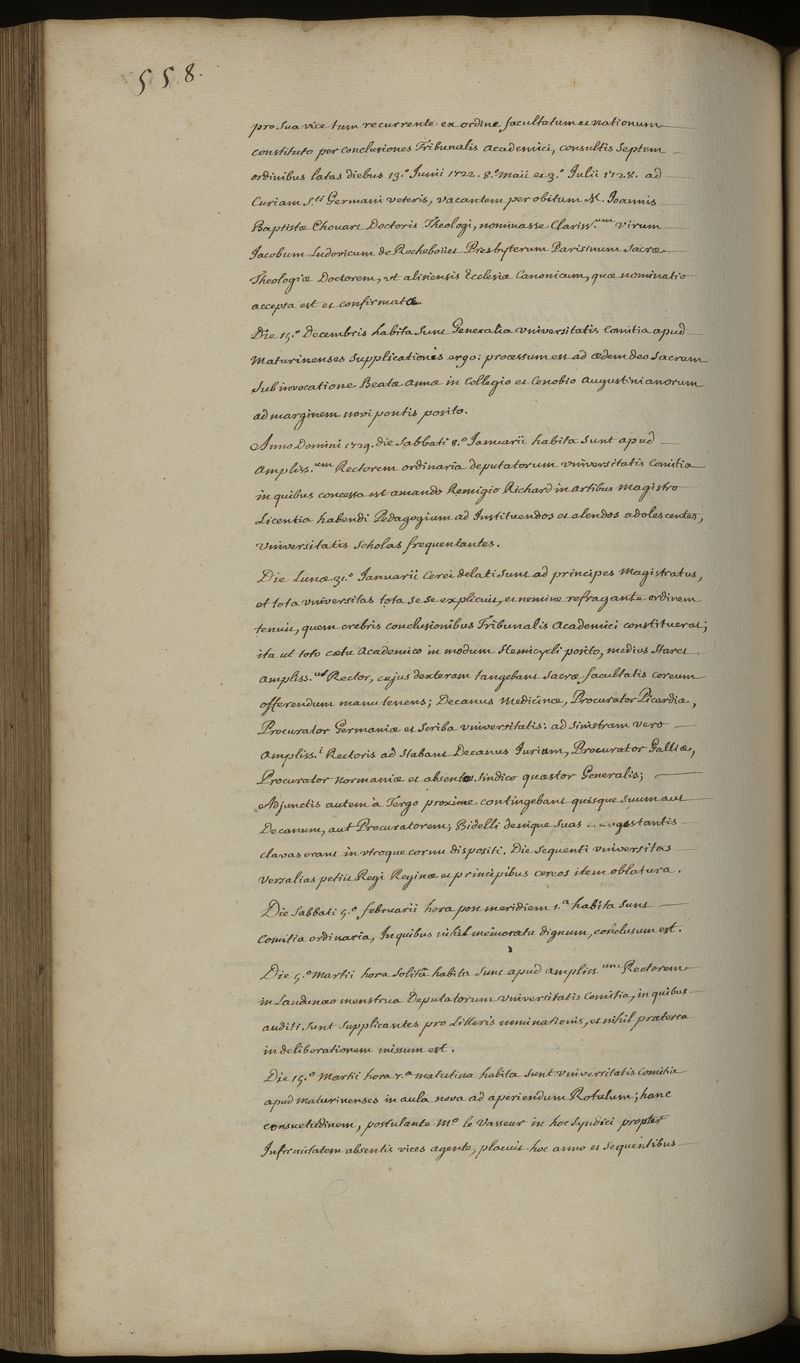 558.
pro sua vice tum recurrente ex ordine facultatum et nationum
constituto per conclusiones Tribunalis academici, consultis septem
ordinibus latas diebus 13.ª Junii 1722. 8.ª Maii et 3.ª Julii 1728. ad
Curiam S.ti Germani veteris, vacantem per obitum M. Joannis
Baptistæ Chouart Doctoris Theologi, nominasse Clariss.um virum
Jacobum Ludovicum de Rochebouet Presbyterum Parisinum Sacræ
Theologiæ Doctorem, ut alisiensis Ecclesiæ Canonicum, quæ nominatio
accepta est et confirmata.
Die 15.ª Decembris habita sunt Generalia universitatis Comitia apud
Maturinenses supplicationis ergo: processum est ad ædem deo sacram
sub invocatione Beatæ annæ in Collegio et Cenobio Augustinianorum
ad marginem novi pontis posito.
Anno Domini 1729. die sabbati 8.ª Januarii habita sunt apud
ampliss.um Rectorem ordinaria deputatorum universitatis Comitia
in quibus concessa est amando Remigio Richard in artibus magistro
Licentia habendi Pedagogium ad Instituendos et alendos adolescentes,
universitatis scholas frequentantes.
Die Lunæ 31.ª Januarii cerei delati sunt ad principes Magistratus,
et tota universitas tota se se explicuit, et nemine refragante ordinem
tenuit, quem crebris conclusionibus Tribunalis academici constituerat;
ita ut toto cœtu academico in modum Hemicycli posito, medius staret
ampliss. Rector, cujus dexteram tangebant sacræ facultatis cereum
offerendum manu tenens; Decanus Medicinæ, Procurator Picardiæ,
Procurator Germaniæ et scriba universitatis: ad sinistram vero
ampliss.i Rectoris ad stabant Decanus Jurium, Procurator Galliæ,
Procurator Normaniæ et absente Sindico quæstor Generalis;
Adjunctis autem à Tergo proxime contingebant quisque suum aut
Decanum, aut Procuratorem; Bidelli denique suas .... gestantis
clavas erant in utroque cornu dispositi. Die sequenti universitas
Versalias petiit Regi Reginæ et principibus cereos item oblatura.
Die sabbati 5.ª februarii hora post meridiem 1.ª habita sunt
Comitia ordinaria, In quibus nihil memoratu dignum, conclusum est.
Die 5.ª Martii hora solitâ habita sunt apud ampliss.um Rectorem
in Laudunæo menstrua Deputatorum universitatis Comitia, in quibus
auditi sunt supplicantes pro Litteris nominationis, et nihil præterea
in deliberationem missum est.
Die 15.ª Martii hora 7.ª matutina habita sunt universitatis Comitia
apud Maturinenses in aula nova ad aperiendum Rotulum; hanc
consuetudinem, postulante M.º le Vasseur in hoc Syndici propter
Infirmitatem absentis vices agente, placuit hoc anno et sequentibus